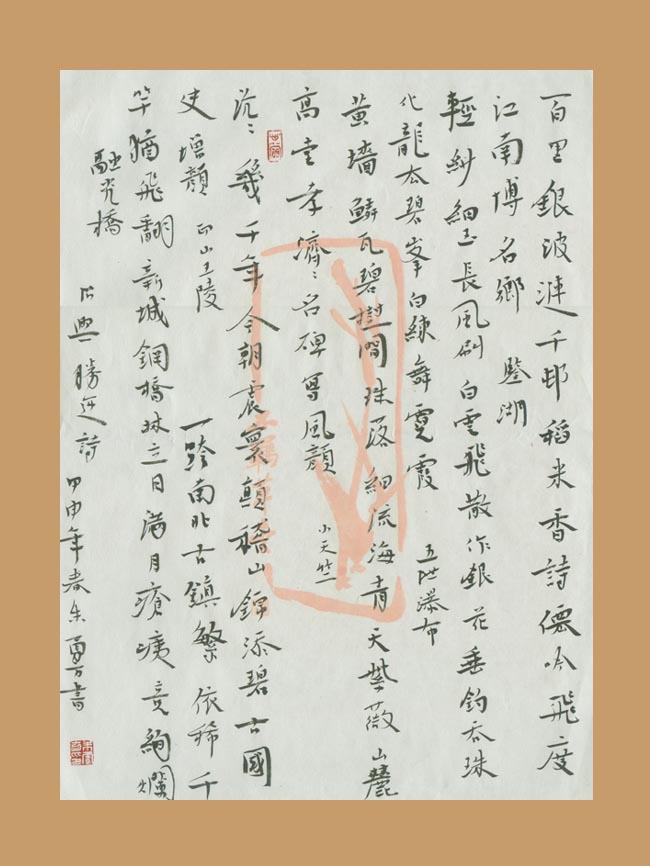 百里銀波漣千邨稻米香詩僊吟飛度
江南博名鄉 鑒湖
輕紗細玉長風刷白雲飛散作銀花垂釣吞珠
化龍太碧峯白練舞霓霞 五泄瀑布
黃墻鱗瓦碧樹間珠落細流海青天紫薇山麓
高堂孝濟〻名碑寫風顏 小天竺
沉〻幾千年今朝震寰顛稽山錦添碧古國
史增顏 印山王陵 一跨南北古鎮繁依稀千
竿猶飛翻新城鋼橋林立日滿目瘡痍竟絢爛
融光橋
興勝延詩 甲申年春朱勇書